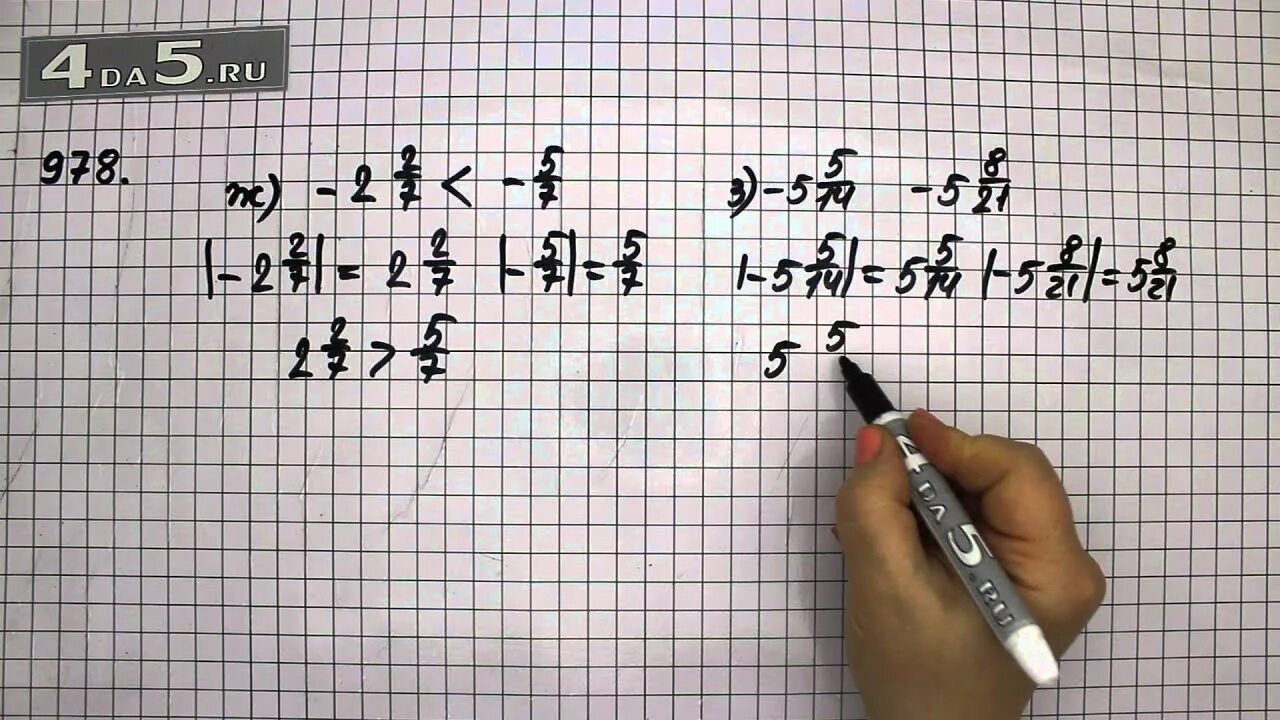 4DA5.RU
978.
ж) -2 2/7 < -5/7
|-2 2/7| = 2 2/7 |-5/7| = 5/7
2 2/7 > 5/7
з) -5 5/14 -5 8/21
|-5 5/14| = 5 5/14 |-5 8/21| = 5 8/21
5 5
4DA5.RU